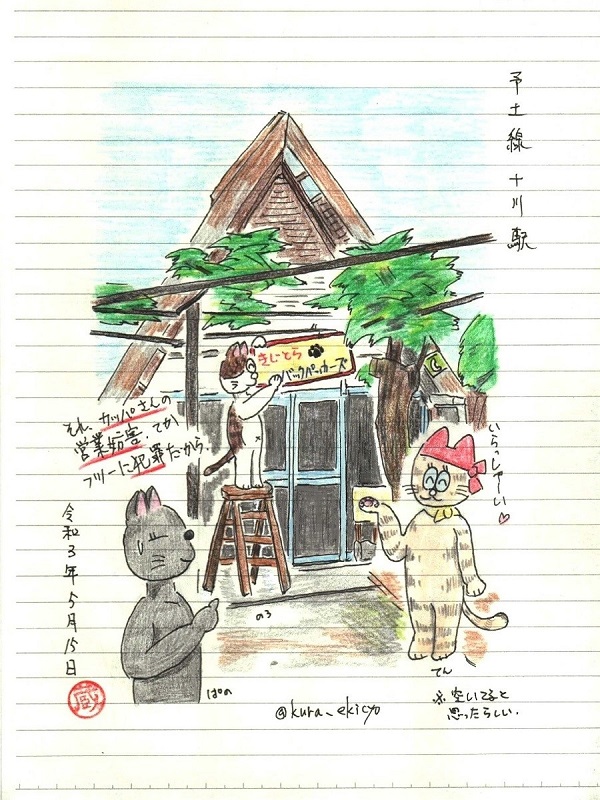 予土線 十川駅
きじとら
バックパッカーズ
それ、カッパさんの
営業妨害、てか
フツーに犯罪だから。
いらっしゃーい♡
令和3年5月15日
蔵
のろ
ぱの
てん
@kura_ekicyo
※空いてると
思ったらしい。